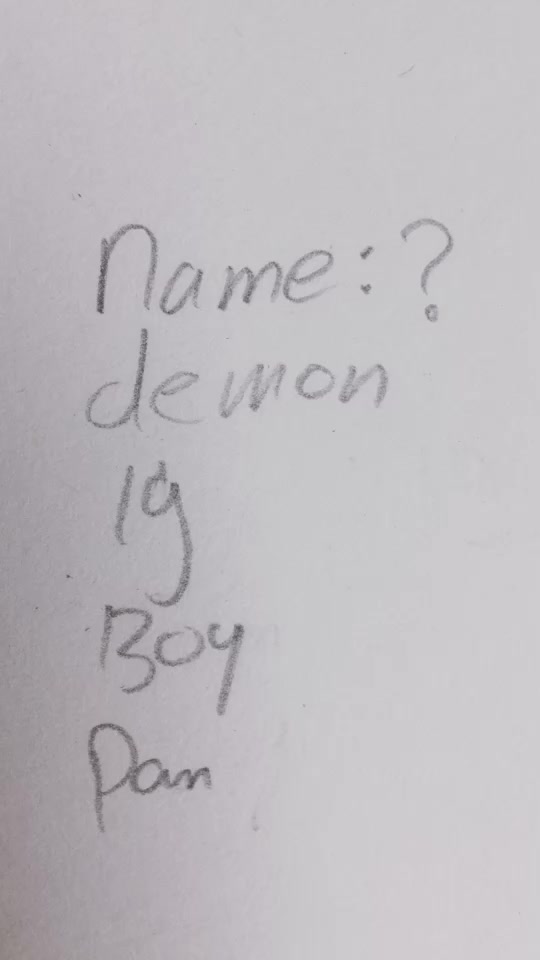 Name:?
demon
19
Boy
Pan